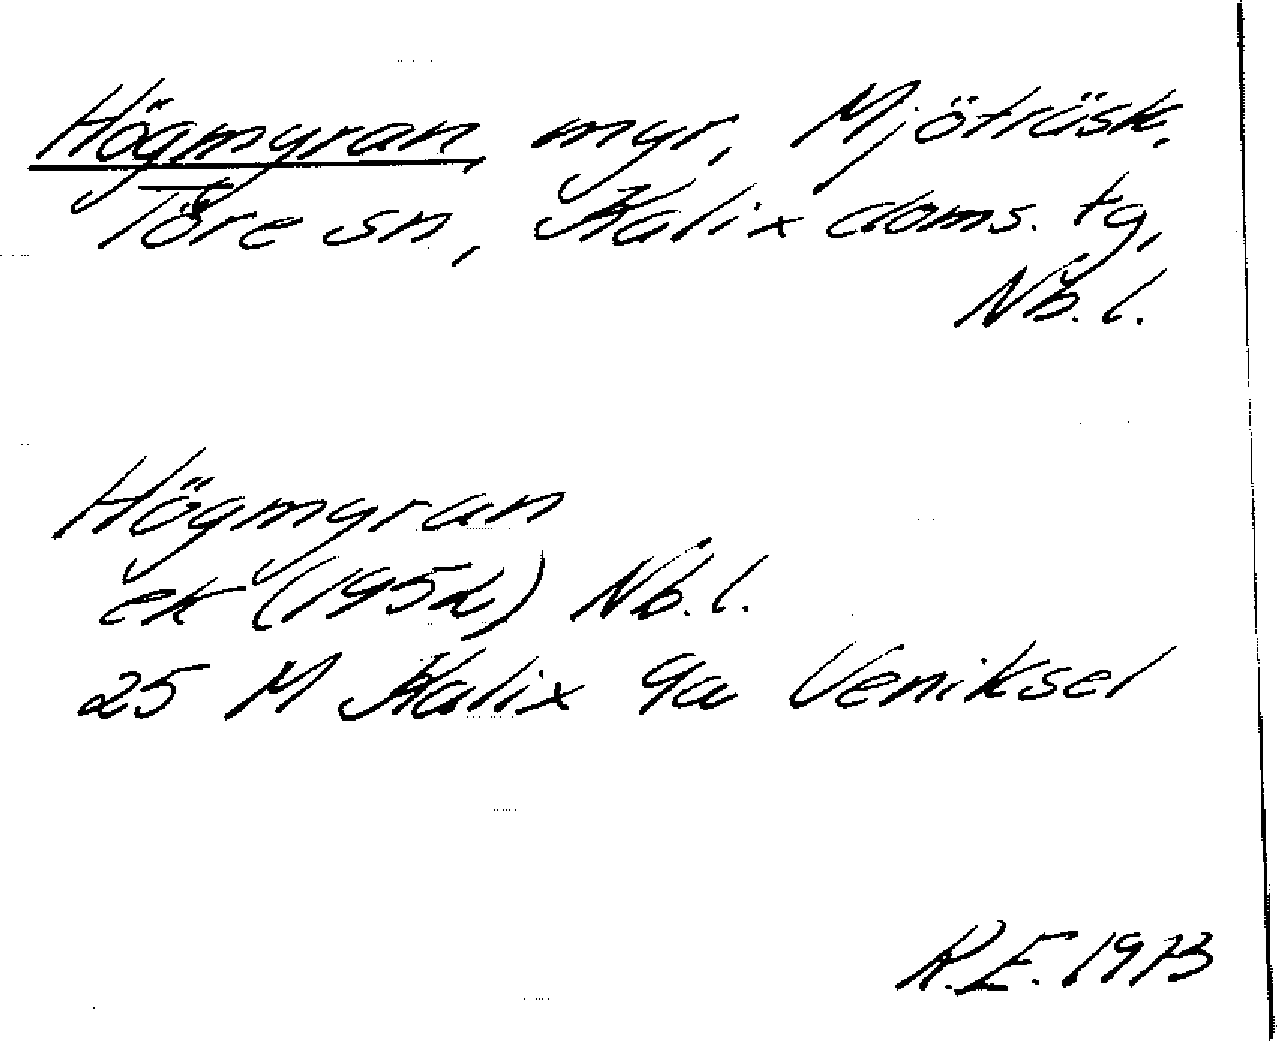 Högmyran, myr, Mjöträsk,
Töre sn, Kalix doms. tg,
Nb. l.
Högmyran
ek (1952) Nb. l.
25 M Kalix 9a Veniksel
R.E. 1973